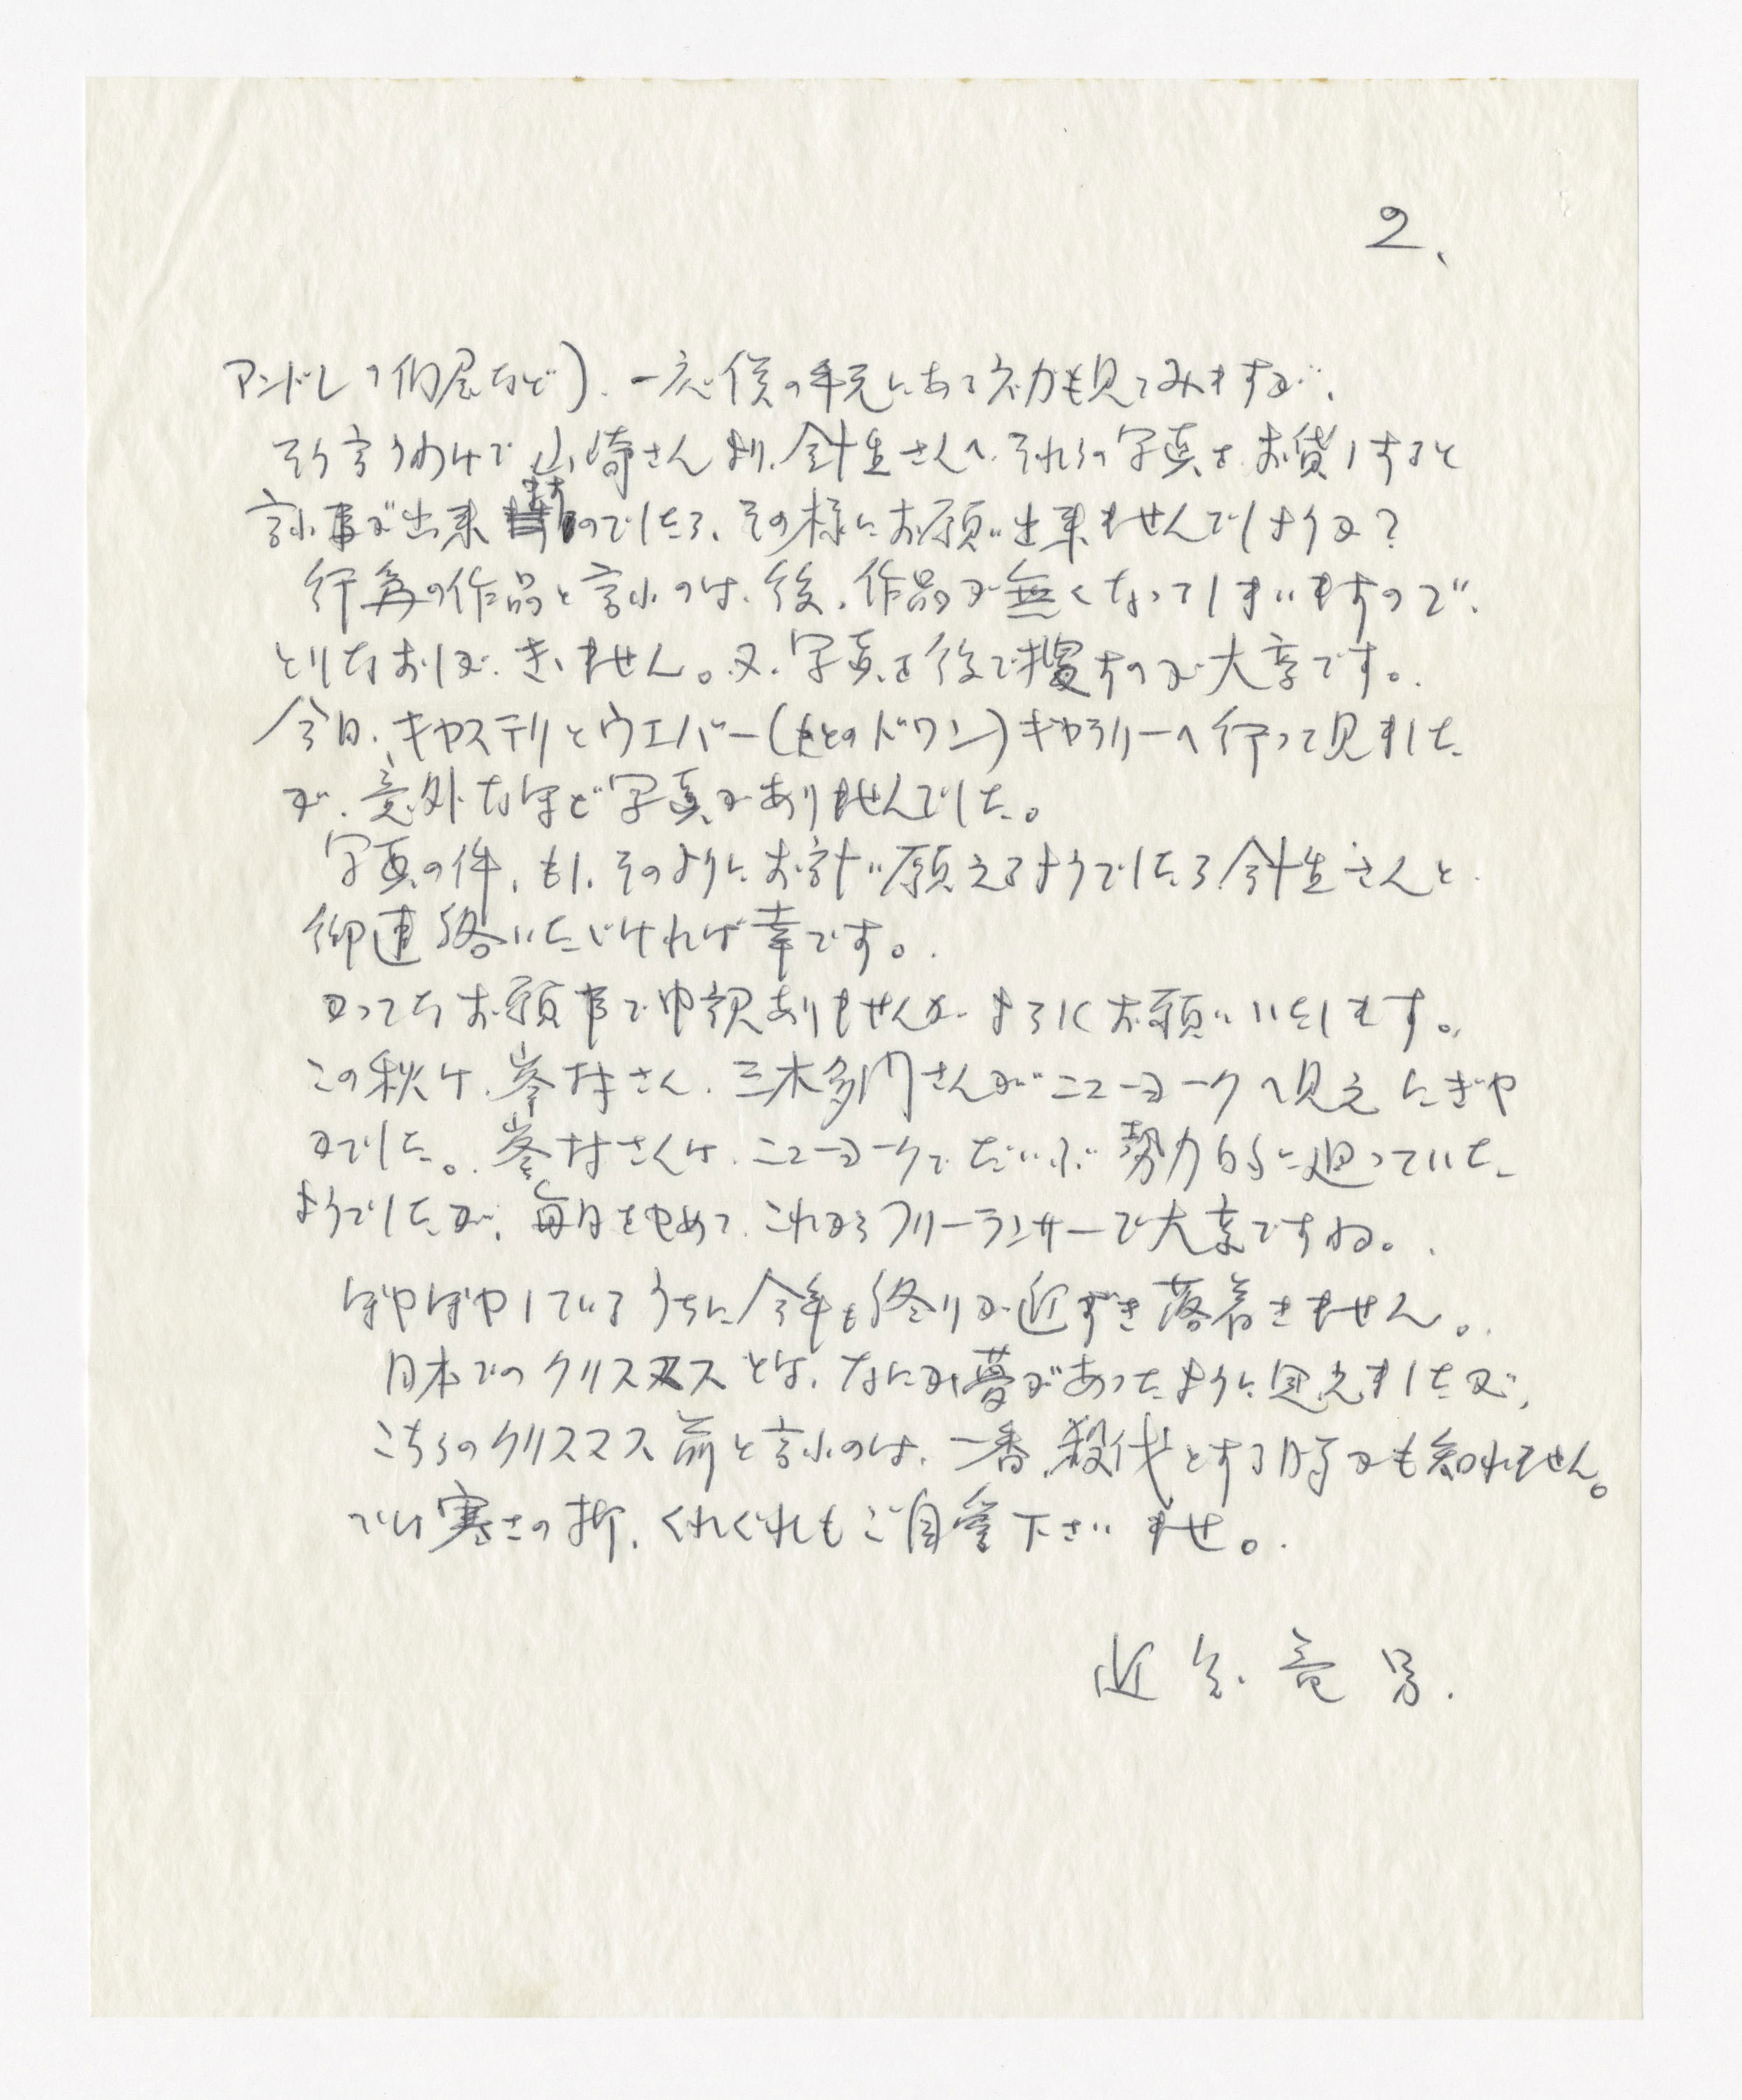 2、
アンドレの個展など)、一応僕の手元にあるネガも見てみますが、
そう言うわけで山崎さんより、針生さんへ、それらの写真を、お貸しすると
言ふ事が出来ますのでしたら、その様にお願い出来ませんでしょうか?
行為の作品と言ふのは、後、作品が無くなってしまいますので、
とりなおしが、きゝません。又、写真を後で捜すのが大変です。
今日、キャステリとウエバー(もとのドワン)ギャラリーへ行って見ました
が、意外なほど写真がありませんでした。
写真の件、もし、そのようにお計い願えるようでしたら針生さんと
御連絡いたゞければ幸です。
かってなお願事で申訳ありませんが、よろしくお願いいたします。
この秋は、峯村さん、三木多門さんがニューヨークへ見えにぎや
かでした。峯村さんは、ニューヨークでだいぶ勢力的に廻っていた
ようでしたが、毎日をやめて、これからフリーランサーで大変ですね。
ぼやぼやしているうちに今年も終りが近ずき落着きません。
日本でのクリスマスとは、なにか夢があったように思えましたが、
こちらのクリスマス前と言ふのは、一番殺伐とする時かも知れません。
では寒さの折、くれぐれもご自愛下さいませ。
近藤竜男